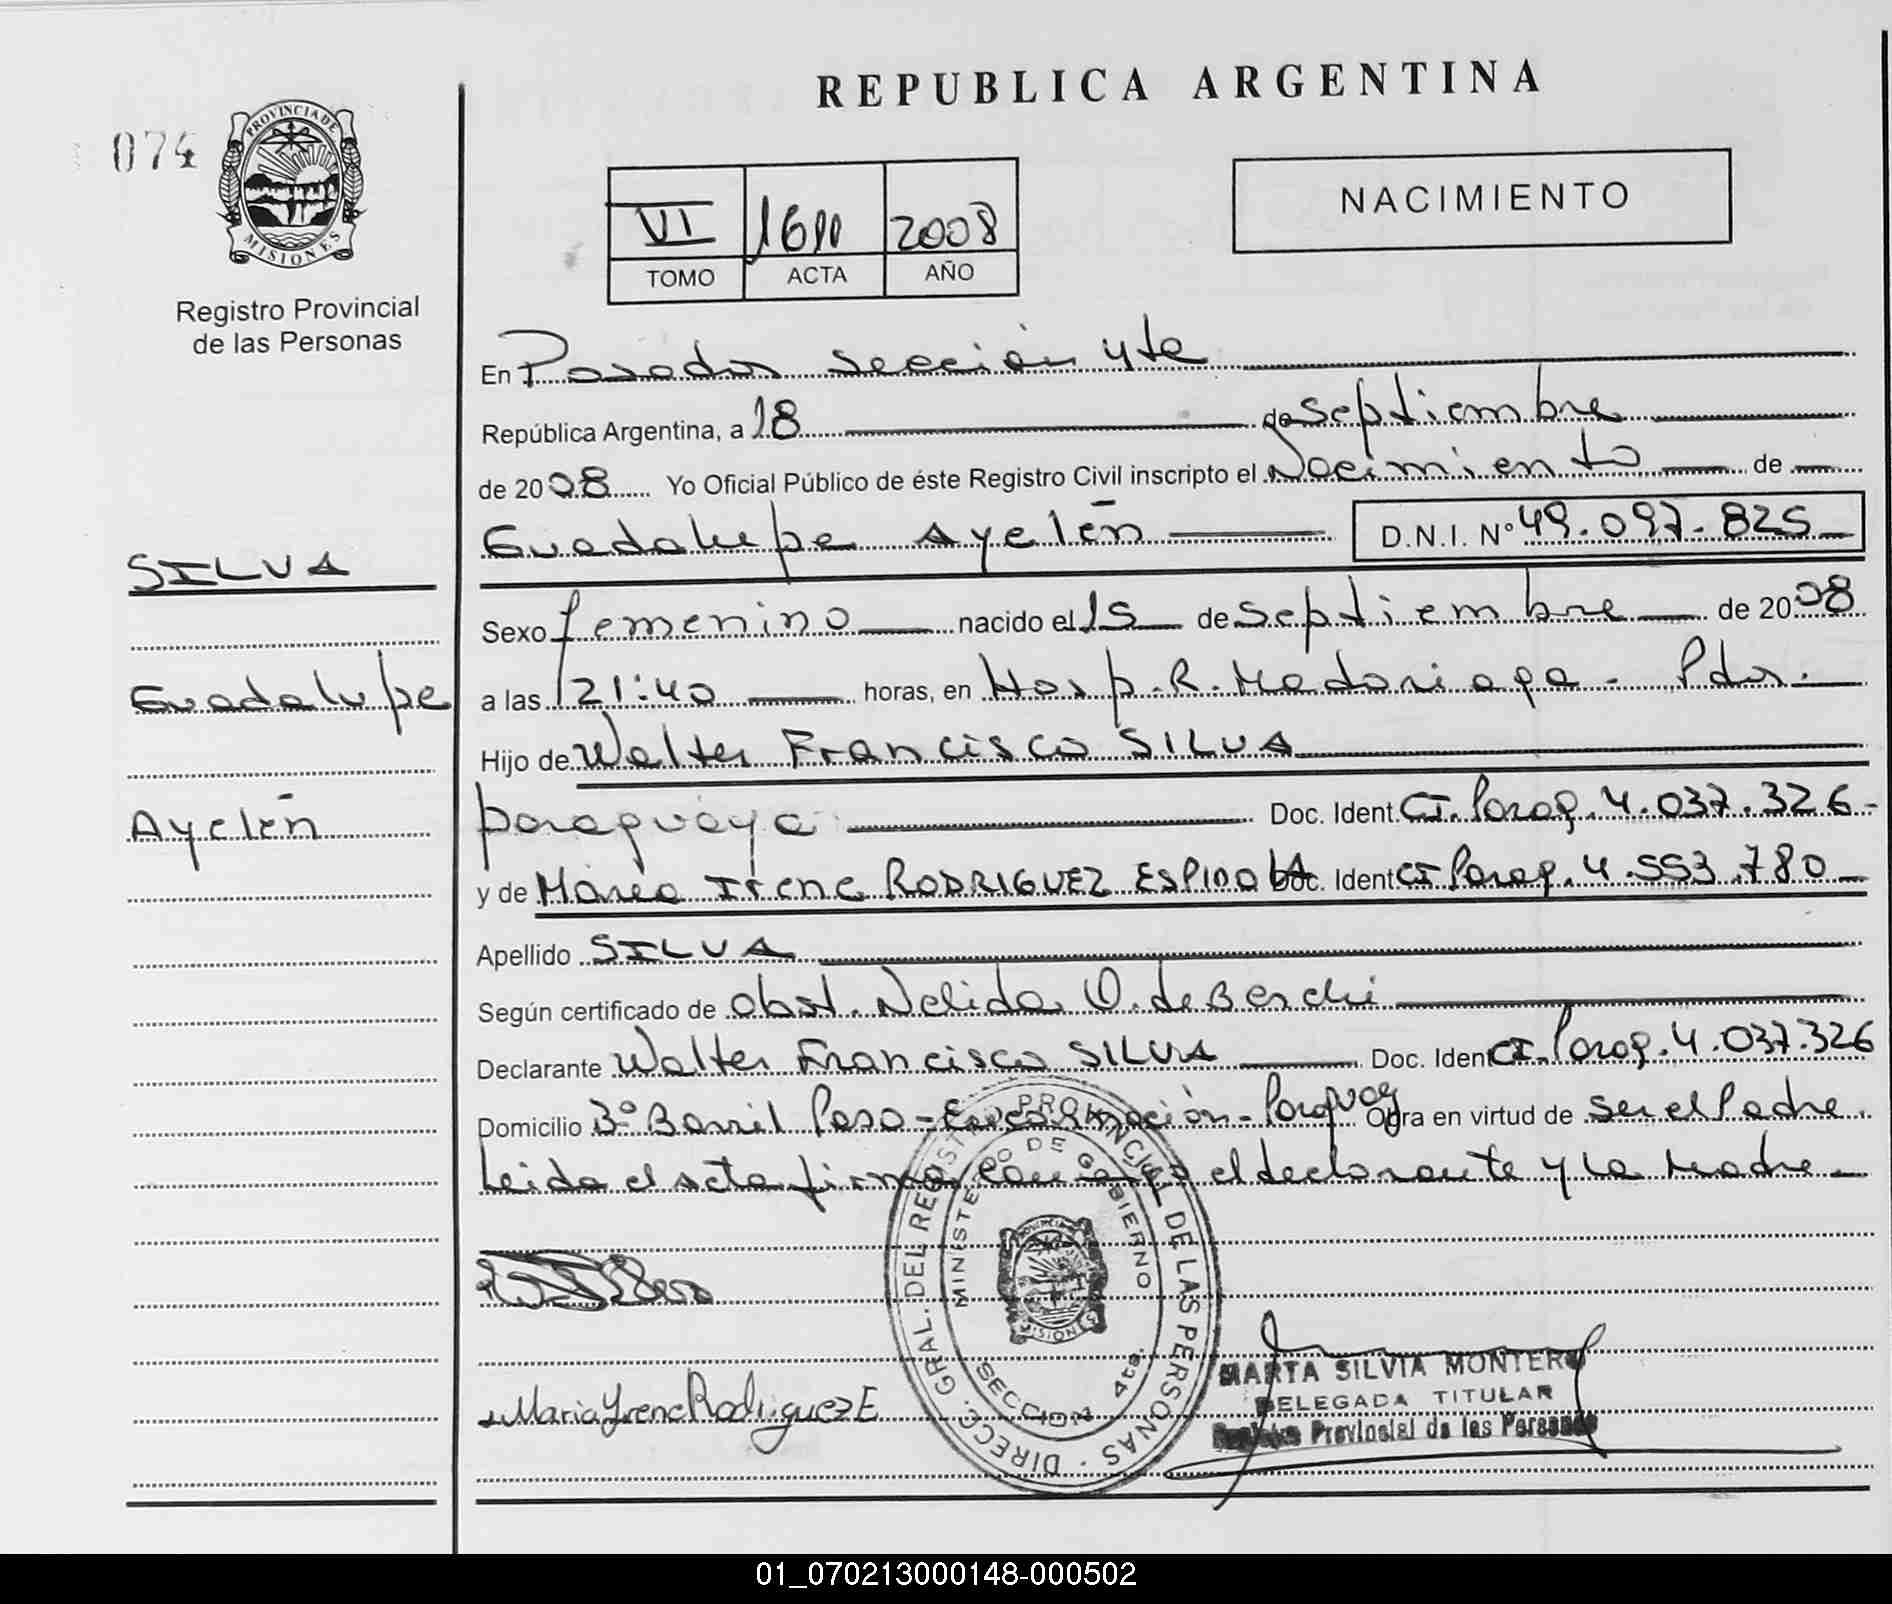 REPUBLICA ARGENTINA
074
PROVINCIA DE
MISIONES
Registro Provincial
de las Personas
VI 2008
TOMO ACTA AÑO
NACIMIENTO
En Posadas sección 4ta
República Argentina, a 18 de septiembre
de 2008 Yo Oficial Público de éste Registro Civil inscripto el Nacimiento de
Guadalupe Ayelén D.N.I. Nº 49.097.825
SILVA
Guadalupe
Ayelén
Sexo femenino nacido el 15 de septiembre de 2008
a las 21:40 horas, en Hosp. R. Madariaga - Pdas.
Hijo de Walter Francisco SILVA
paraguaya Doc. Ident. CI. Parag. 4.037.326-
y de María Irene RODRIGUEZ Doc. Ident CI Parag. 4.553.780
Apellido SILVA
Según certificado de obst. Nelida O. de Berchi
Declarante Walter Francisco SILVA Doc. Ident CI. Parag. 4.037.326
Domicilio Bº Barril Paso - Encarnación - Paraguay Obra en virtud de ser el Padre.
Leida el acta firman conmigo el declarante y la Madre
DIRECC. GRAL. DEL REGISTRO PROVINCIAL DE LAS PERSONAS
MINISTERIO DE GOBIERNO
MISIONES
SECCION 4ta.
Maria Yrene Rodriguez E
MARTA SILVIA MONTERO
DELEGADA TITULAR
Registro Provincial de las Personas
01_070213000148-000502